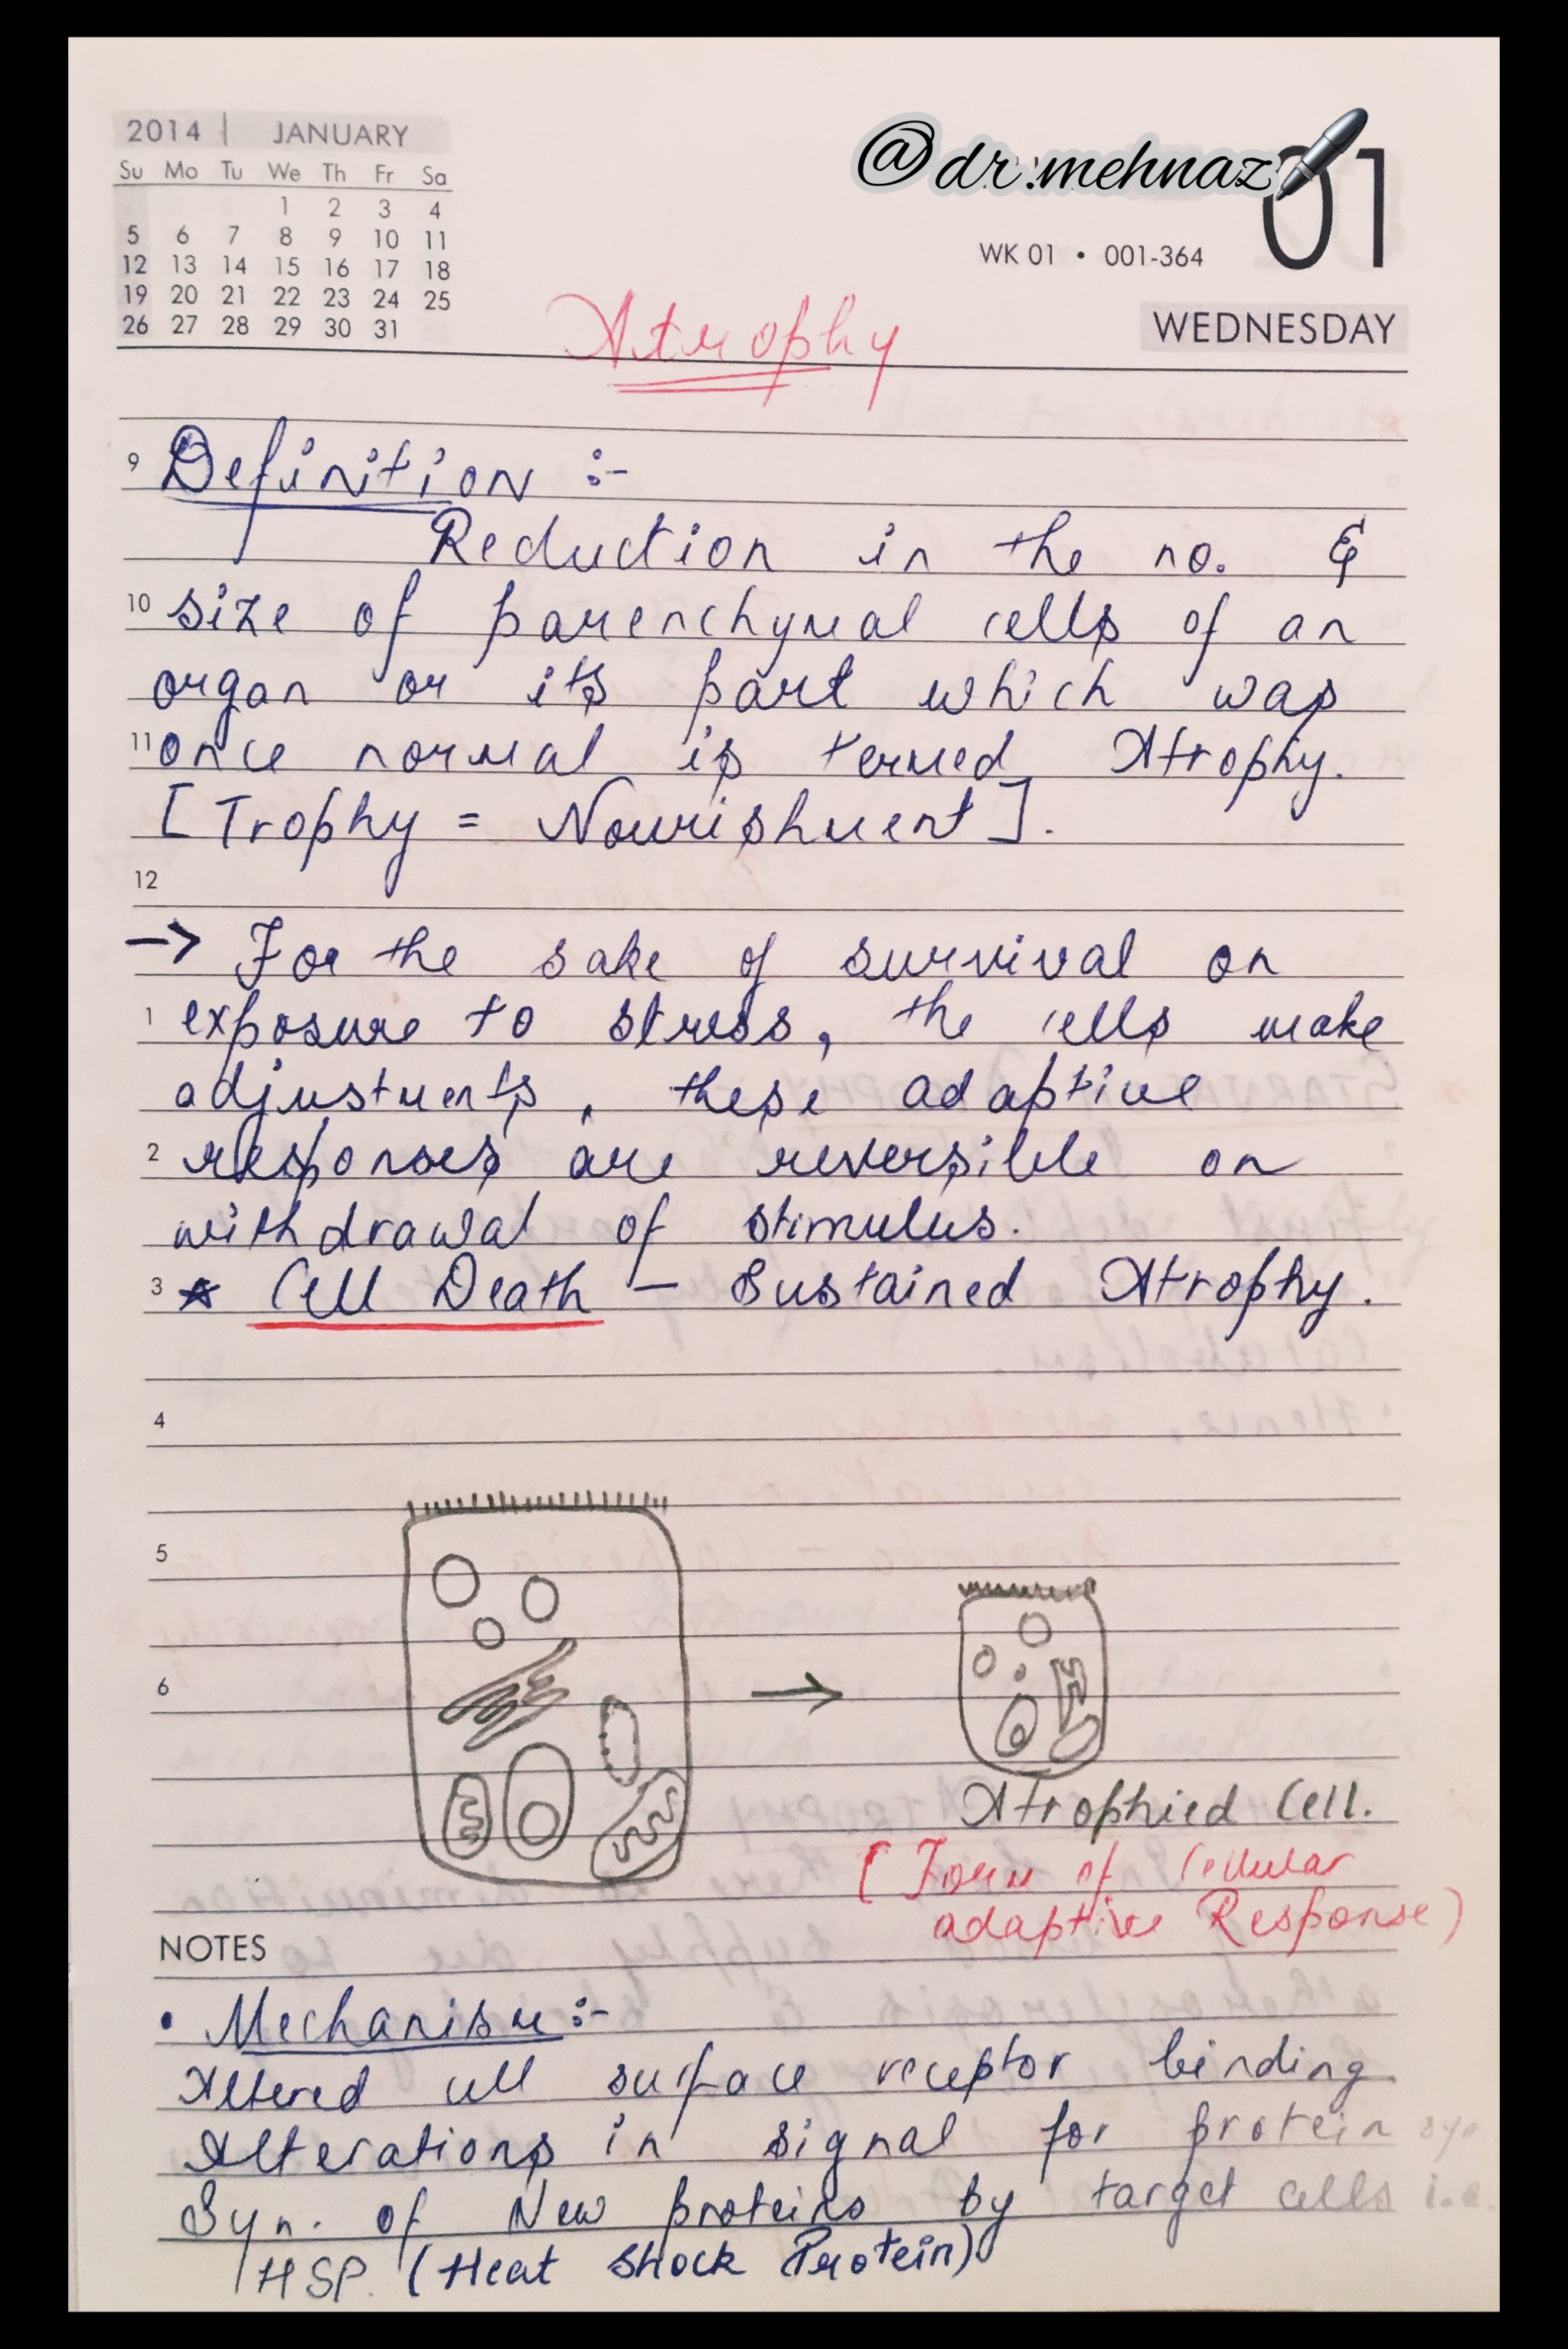 2014 | JANUARY
Su Mo Tu We Th Fr Sa
1 2 3 4
5 6 7 8 9 10 11
12 13 14 15 16 17 18
19 20 21 22 23 24 25
26 27 28 29 30 31
@dr.mehnaz
01
WK 01 • 001-364
WEDNESDAY
Atrophy
9 Definition :-
Reduction in the no. &
10 size of parenchymal cells of an
organ or its part which was
11 once normal is termed Atrophy.
[Trophy = Nourishment].
12
-> For the sake of survival on
1 exposure to stress, the cells make
adjustments, these adaptive
2 responses are reversible on
withdrawal of stimulus.
3 * Cell Death - Sustained Atrophy.
4
5
6
Atrophied Cell.
[Form of Cellular
adaptive Response)
NOTES
• Mechanism:-
Altered cell surface receptor binding
Alterations in signal for protein syn
Syn. of New proteins by target cells i.e.
HSP. (Heat Shock Protein)